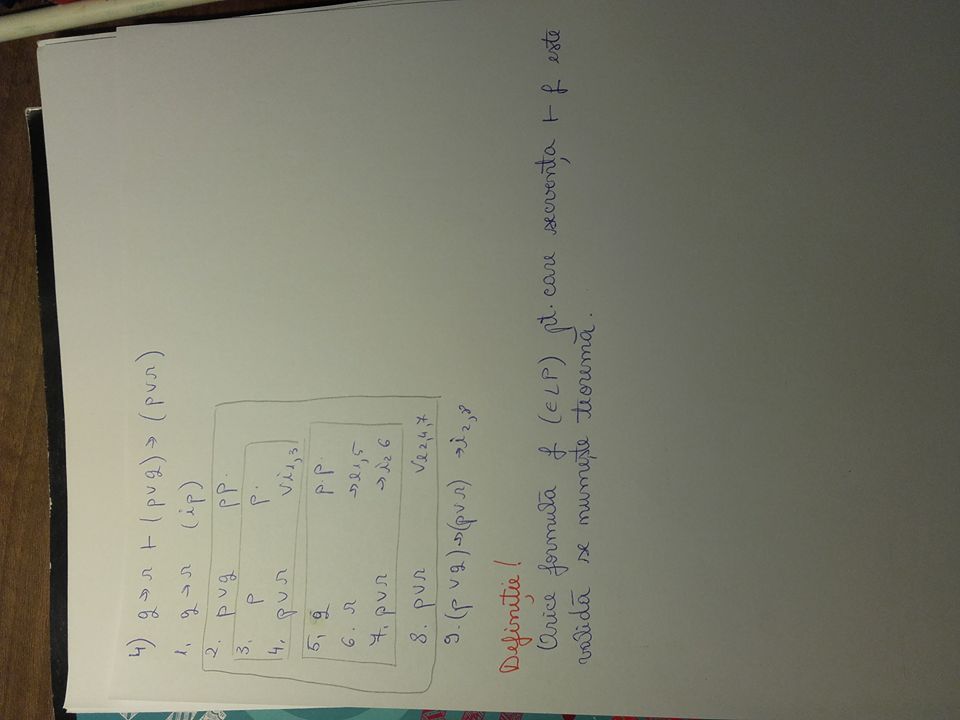 4) q → r ⊢ (p ∨ q) → (p ∨ r)
1. q → r (ip)
2. p ∨ q pp.
3. p p.
4. p ∨ r ∨i1,3
5. q p.p.
6. r →e1,5
7. p ∨ r →i2 6
8. p ∨ r ∨e2,4,7
9. (p ∨ q) → (p ∨ r) →i2,8
Definiție!
Orice formulă f (∈ LP) pt. care secvența ⊢ f este
validă se numește teoremă.